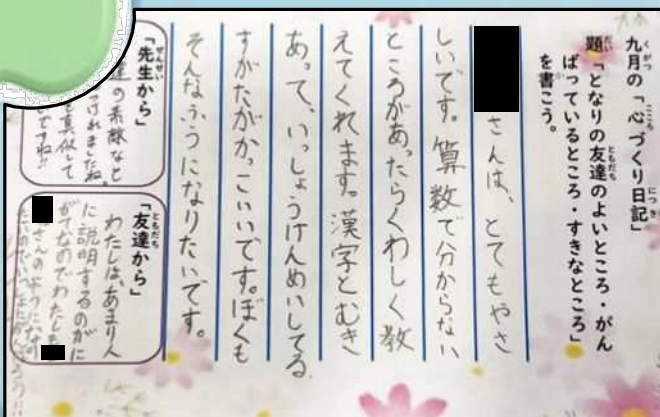 九月の「心づくり日記」
題「となりの友達のよいところ・がん
ばっているところ・すきなところ」
を書こう。
さんは、とてもやさ
しいです。算数で分からない
ところがあったらくわしく教
えてくれます。漢字とむき
あって、いっしょうけんめいしてる
すがたがかっこいいです。ぼくも
そんなふうになりたいです。
「先生から」
の素敵なと
つけれましたね。
真似して
ですね!!
「友達から」
わたしは、あまり人
に説明するのがに
がてなのでわたしも
さんのように